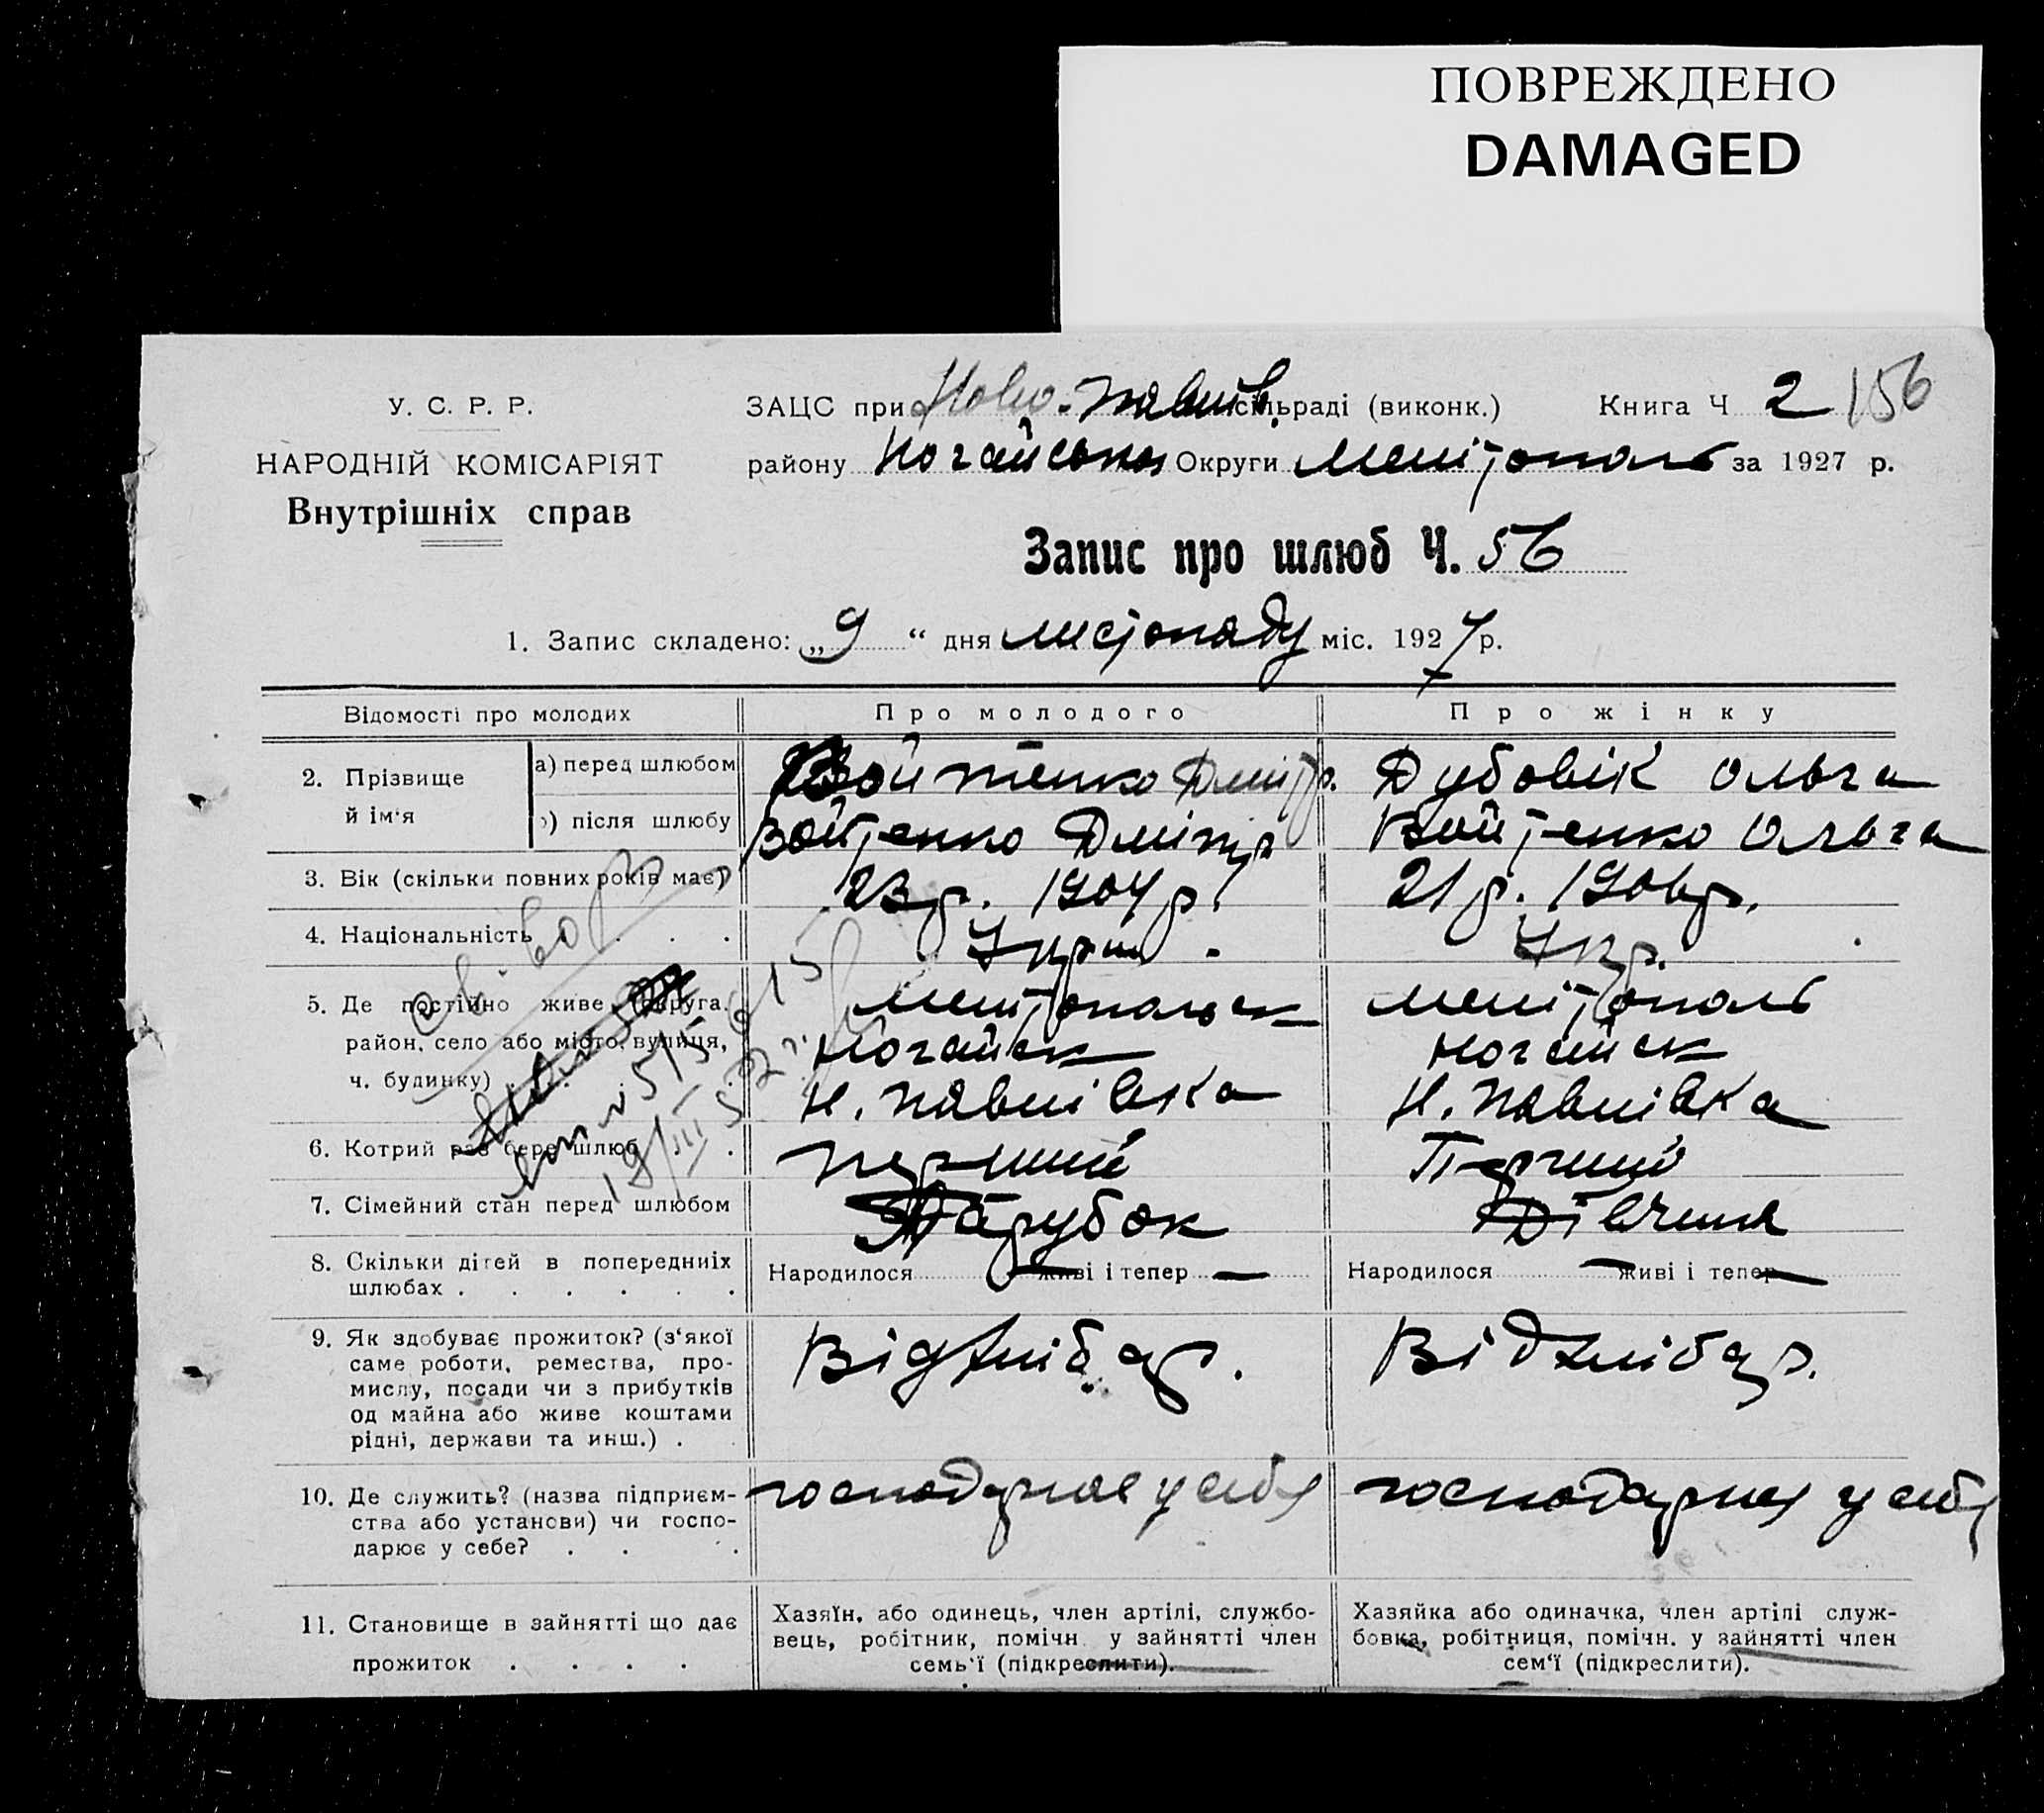 ПОВРЕЖДЕНО
DAMAGED
У. С. Р. Р.
НАРОДНІЙ КОМІСАРІЯТ
Внутрішніх справ
ЗАЦС при Ново-Павлів. сільраді (виконк.) Книга Ч 2 156
району Ногайськ Округи Мелітополь за 1927 р.
Запис про шлюб Ч. 56
1. Запис складено: „9“ дня листопаду міс. 1927 р.
Відомості про молодих Про молодого Про жінку
2. Прізвище й ім‘я
а) перед шлюбом Войтенко Дмітр. Дубовік Ольга
б) після шлюбу Войтенко Дмітр Войтенко Ольга
3. Вік (скільки повних років має) 23 р. 1904 р. 21 р. 1906 р.
4. Національність . . . Укр. Укр.
5. Де постійно живе (округа, Мелітопольск Мелітополь
район, село або місто, вулиця, Ногайск Ногайск
ч. будинку) . . . Н. Павлівка Н. Павлівка
6. Котрий раз бере шлюб . Перший Перший
7. Сімейний стан перед шлюбом Парубок Дівчина
8. Скільки дітей в попередніх Народилося — живі і тепер — Народилося — живі і тепер —
шлюбах . . . . . .
9. Як здобуває прожиток? (з‘якої Від хлібар. Від хлібар.
саме роботи, ремества, про-
мислу, посади чи з прибутків
од майна або живе коштами
рідні, держави та инш.) .
10. Де служить? (назва підприєм- господарює у себе господарює у себе
ства або установи) чи госпо-
дарює у себе? . . .
11. Становище в зайнятті що дає
прожиток . . . .
Хазяїн, або одинець, член артілі, службо-
вець, робітник, помічн. у зайнятті член
семь‘ї (підкреслити).
Хазяйка або одиначка, член артілі служ-
бовка, робітниця, помічн. у зайнятті член
сем‘ї (підкреслити).